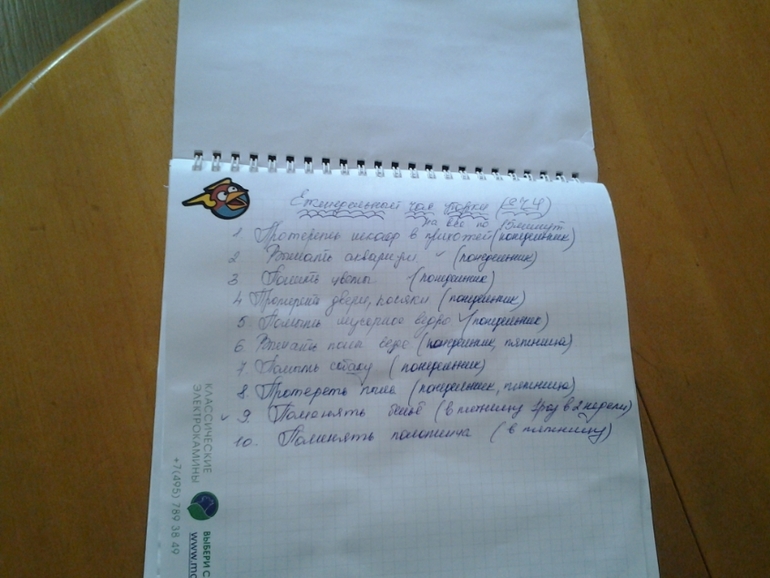 Еженедельный час уборки (ЕЧУ)
на все по 15 минут
1. Протереть комод в прихожей (понедельник)
2 аквариум (понедельник)
3 цветы (понедельник)
4 Протереть двери, косяки (понедельник)
5. Помыть мусорное ведро (понедельник)
6. пола (понедельник, пятница)
7. Помыть собаку (понедельник)
8. Протереть (понедельник, пятница)
9. Поменять бельё (в пятницу 1 раз в 2 недели)
10. Поменять полотенца (в пятницу)
КЛАССИЧЕСКИЕ
ЭЛЕКТРОКАМИНЫ
+7(495) 789 38 49
ВЫБЕРИ С
www.mo